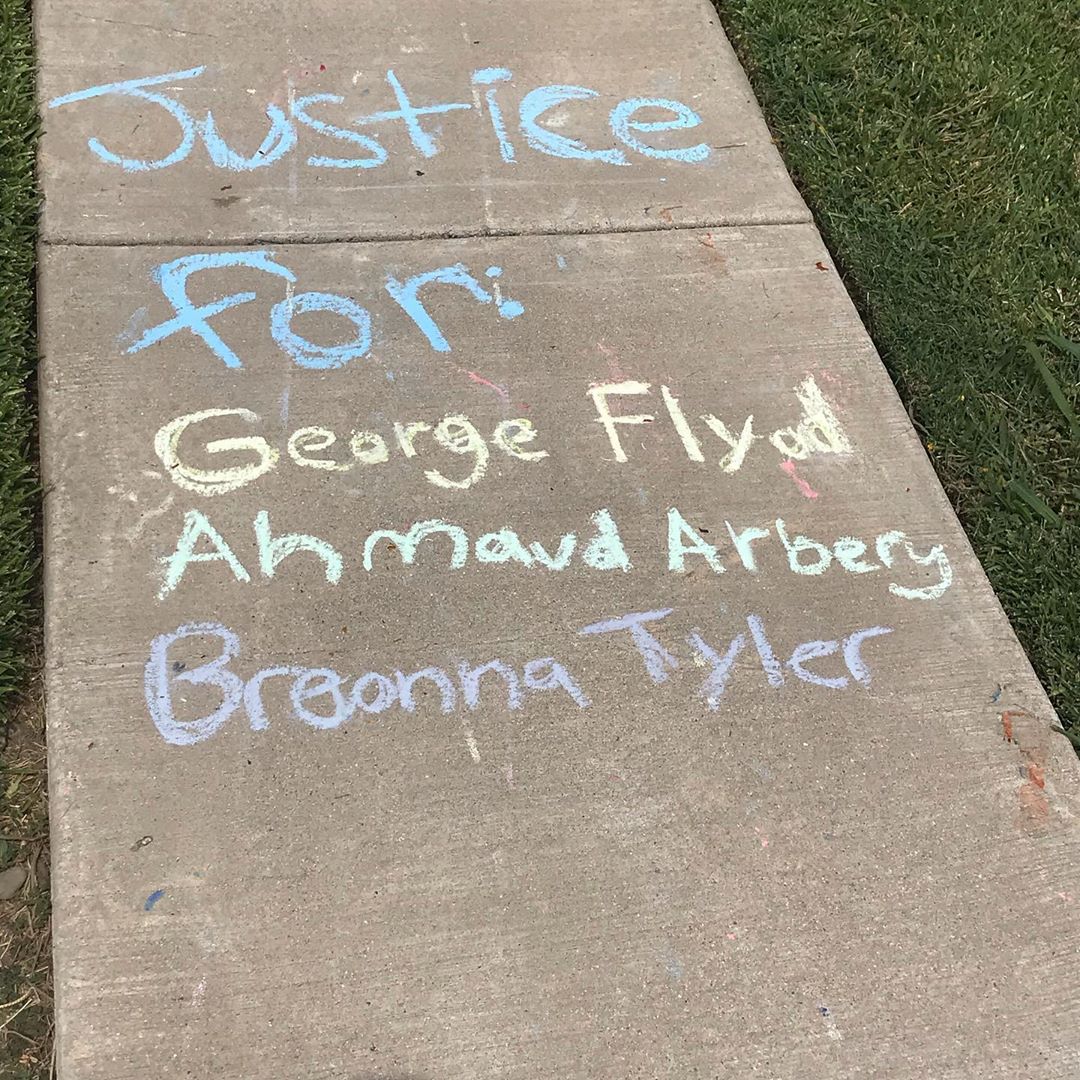 Justice
for:
George Flyod
Ahmaud Arbery
Breonna Tyler